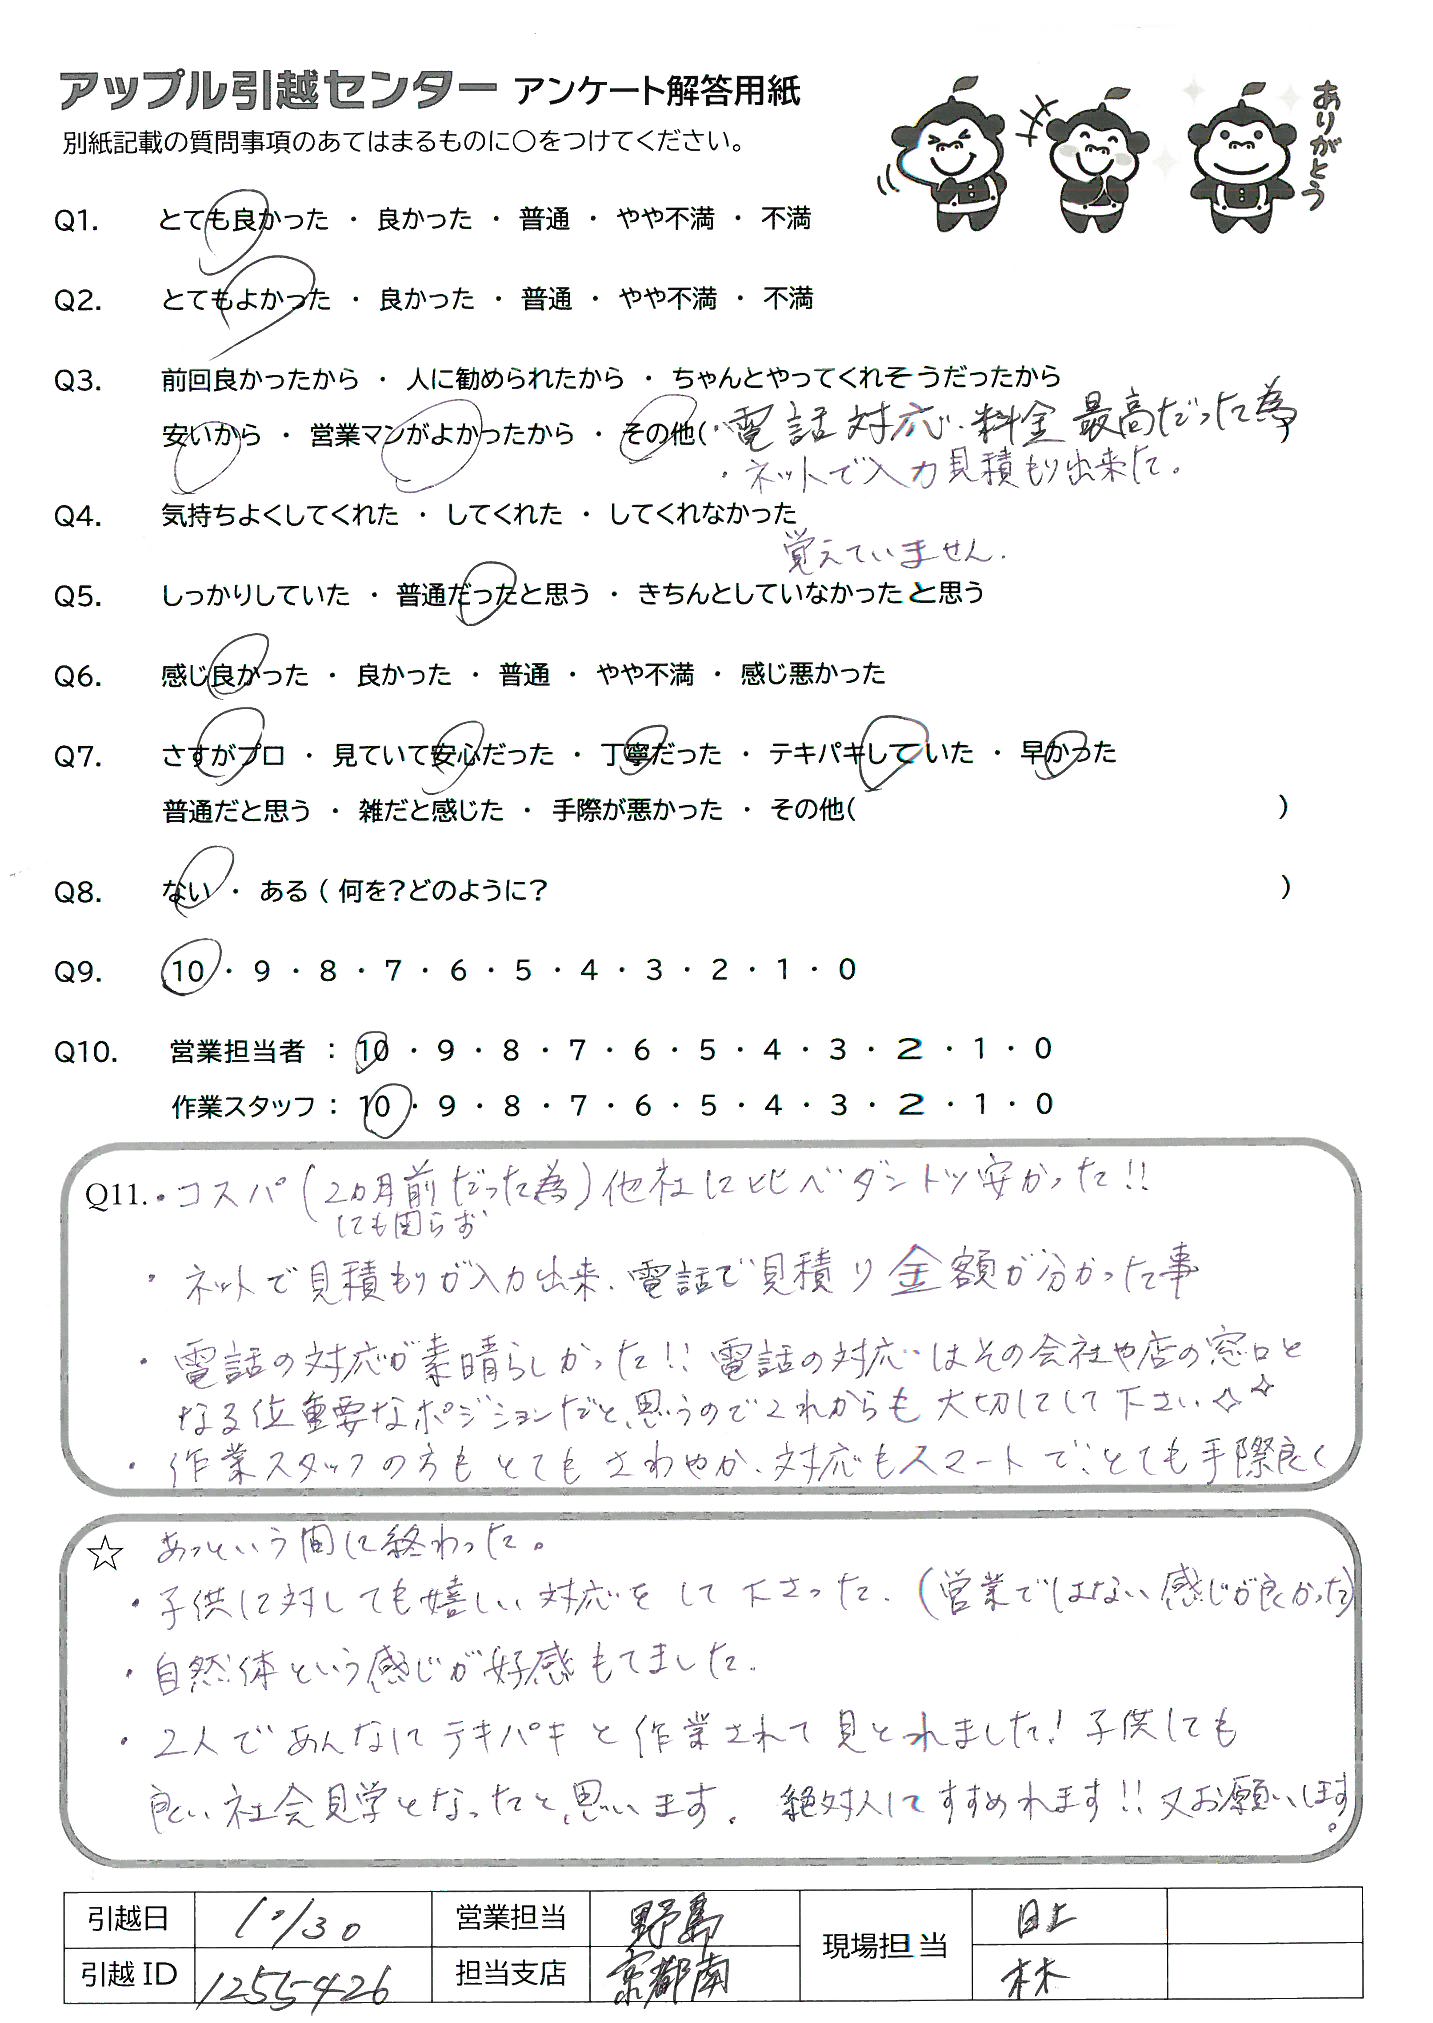 アップル引越センター アンケート解答用紙
ありがとう
別紙記載の質問事項のあてはまるものに○をつけてください。
Q1. とても良かった ・ 良かった ・ 普通 ・ やや不満 ・ 不満
Q2. とてもよかった ・ 良かった ・ 普通 ・ やや不満 ・ 不満
Q3. 前回良かったから ・ 人に勧められたから ・ ちゃんとやってくれそうだったから
安いから ・ 営業マンがよかったから ・ その他(・電話対応・料金最高だった為)
・ネットで入力見積もり出来た。
Q4. 気持ちよくしてくれた ・ してくれた ・ してくれなかった
覚えていません.
Q5. しっかりしていた ・ 普通だったと思う ・ きちんとしていなかったと思う
Q6. 感じ良かった ・ 良かった ・ 普通 ・ やや不満 ・ 感じ悪かった
Q7. さすがプロ ・ 見ていて安心だった ・ 丁寧だった ・ テキパキしていた ・ 早かった
普通だと思う ・ 雑だと感じた ・ 手際が悪かった ・ その他( )
Q8. ない ・ ある ( 何を?どのように? )
Q9. 10 ・ 9 ・ 8 ・ 7 ・ 6 ・ 5 ・ 4 ・ 3 ・ 2 ・ 1 ・ 0
Q10. 営業担当者 : 10 ・ 9 ・ 8 ・ 7 ・ 6 ・ 5 ・ 4 ・ 3 ・ 2 ・ 1 ・ 0
作業スタッフ : 10 ・ 9 ・ 8 ・ 7 ・ 6 ・ 5 ・ 4 ・ 3 ・ 2 ・ 1 ・ 0
Q11. ・コスパ(2ヵ月前だった為)他社に比べダントツ安かった!!
にも関らず
・ネットで見積もりが入力出来、電話で見積り金額が分かった事
・電話の対応が素晴らしかった!! 電話の対応はその会社や店の窓口と
なる位重要なポジションだと思うのでこれからも大切にして下さい☆☆
・作業スタッフの方もとてもさわやか、対応もスマートで、とても手際良く
☆ あっという間に終わった。
・子供に対しても嬉しい対応をして下さった.(営業ではない感じが良かった)
・自然体という感じが好感もてました.
・2人であんなにテキパキと作業されて見とれました! 子供にも
良い社会見学となったと思います. 絶対人にすすめれます!! 又お願いします。
引越日 10/30 営業担当 野島 現場担当 日上
引越ID 1255426 担当支店 京都南 林